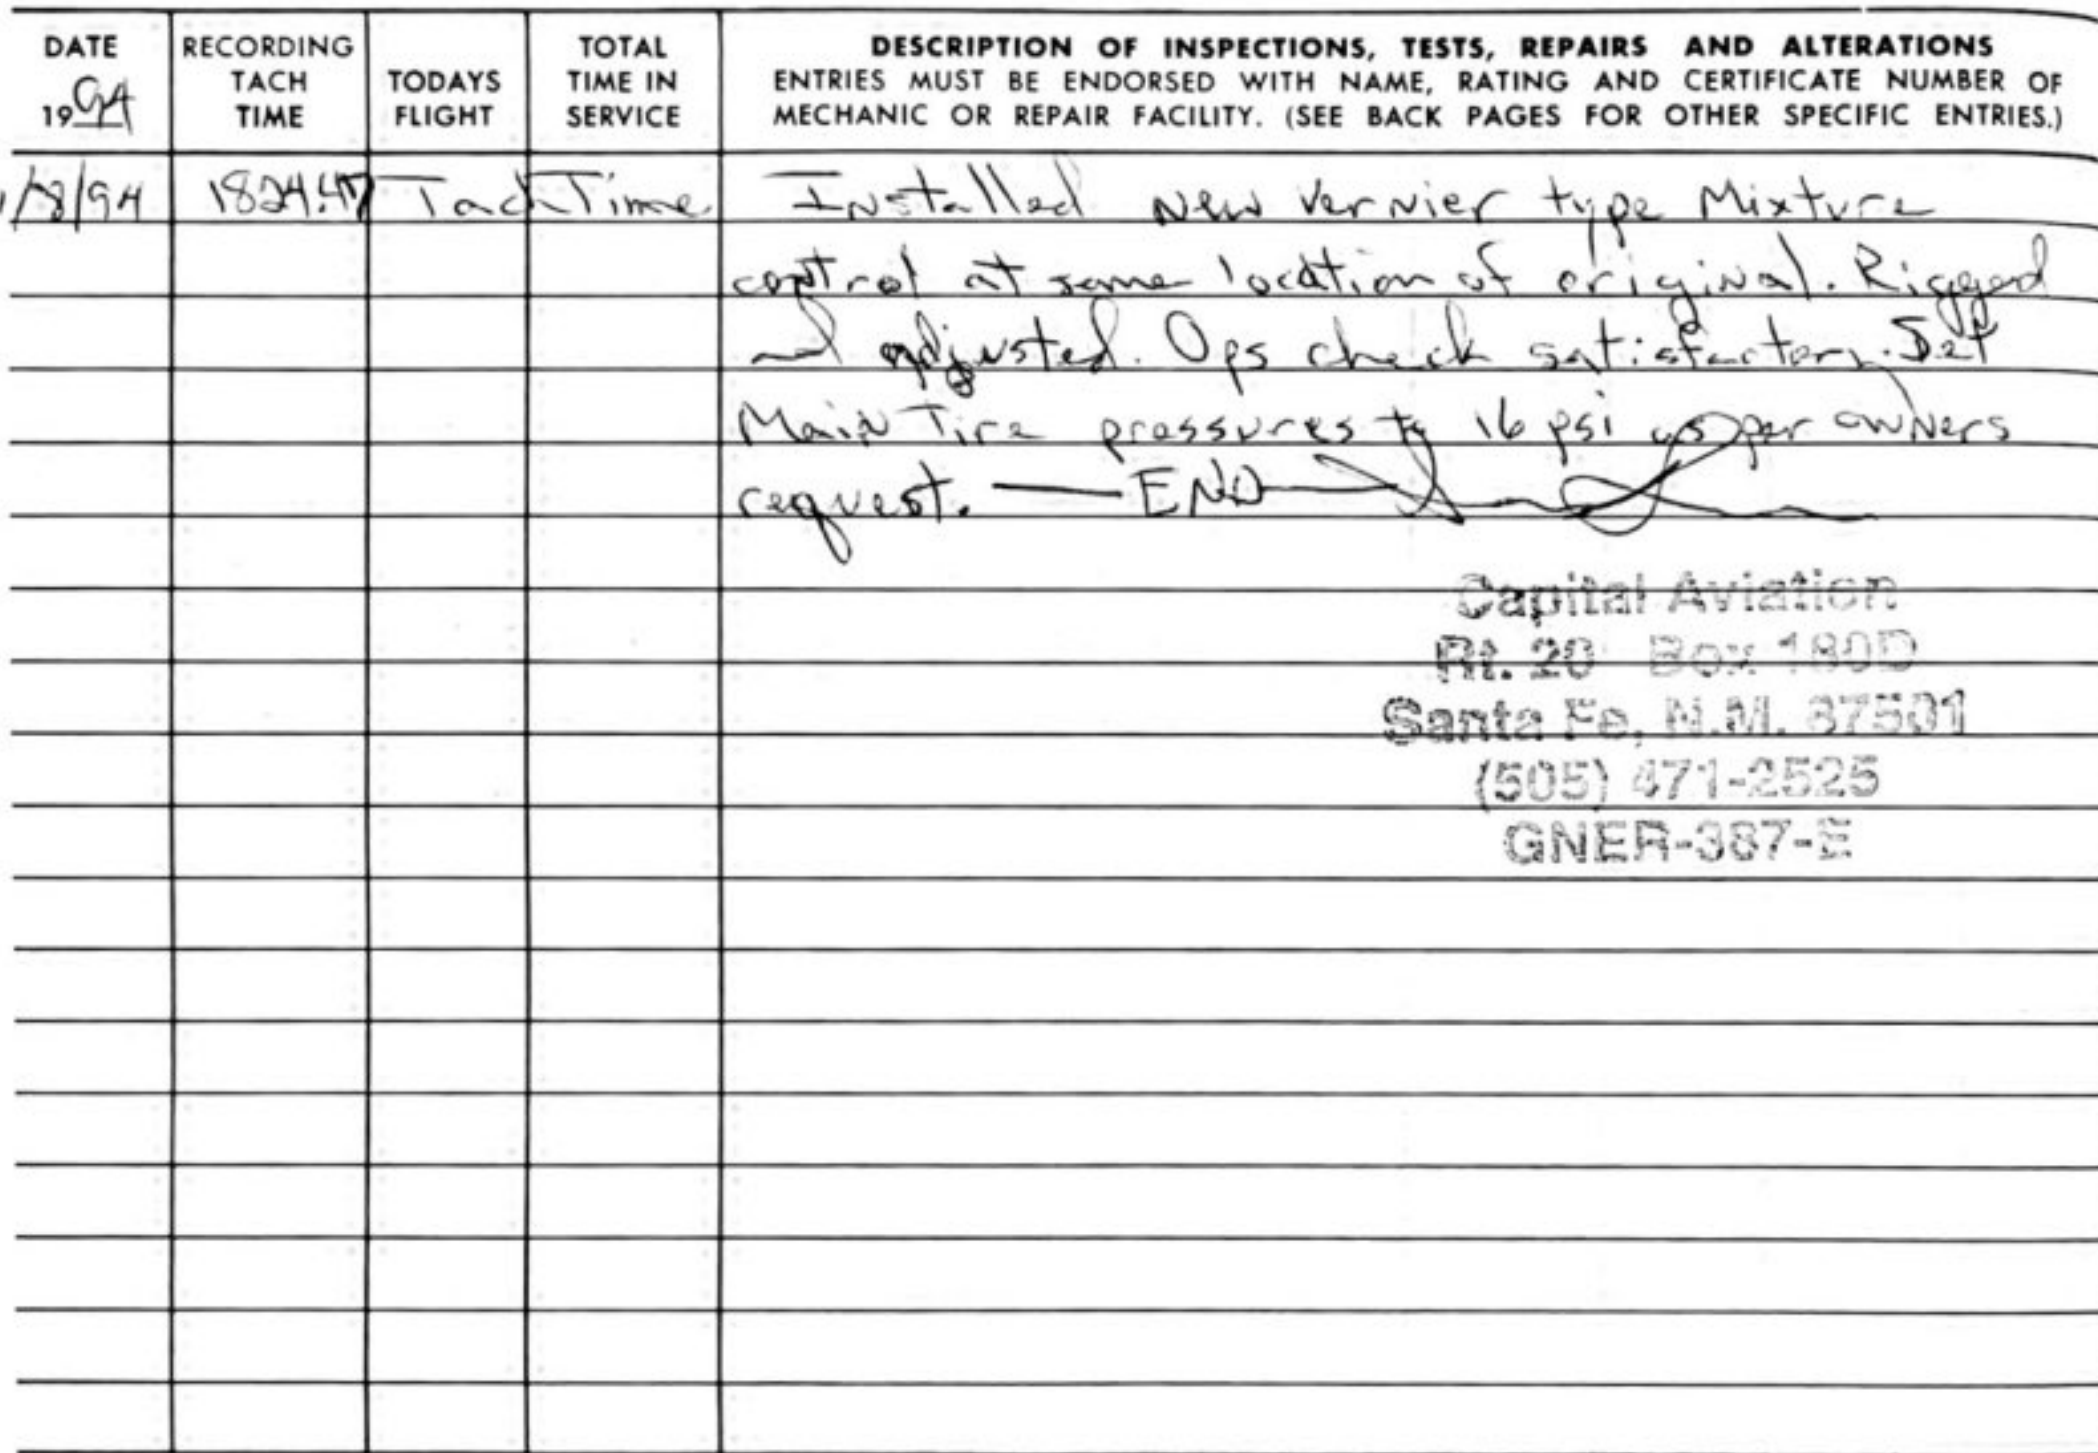 DATE
1994
RECORDING
TACH
TIME
TODAYS
FLIGHT
TOTAL
TIME IN
SERVICE
DESCRIPTION OF INSPECTIONS, TESTS, REPAIRS AND ALTERATIONS
ENTRIES MUST BE ENDORSED WITH NAME, RATING AND CERTIFICATE NUMBER OF
MECHANIC OR REPAIR FACILITY. (SEE BACK PAGES FOR OTHER SPECIFIC ENTRIES.)
Tach Time Installed New Vernier type Mixture
control at same location of original. Rigged
and adjusted. Ops check satisfactory. Set
Main Tire pressures to 16 psi as per owners
request. — END —
Capital Aviation
Rt. 20 Box 180D
Santa Fe, N.M. 87501
(505) 471-2525
GNER-387-E